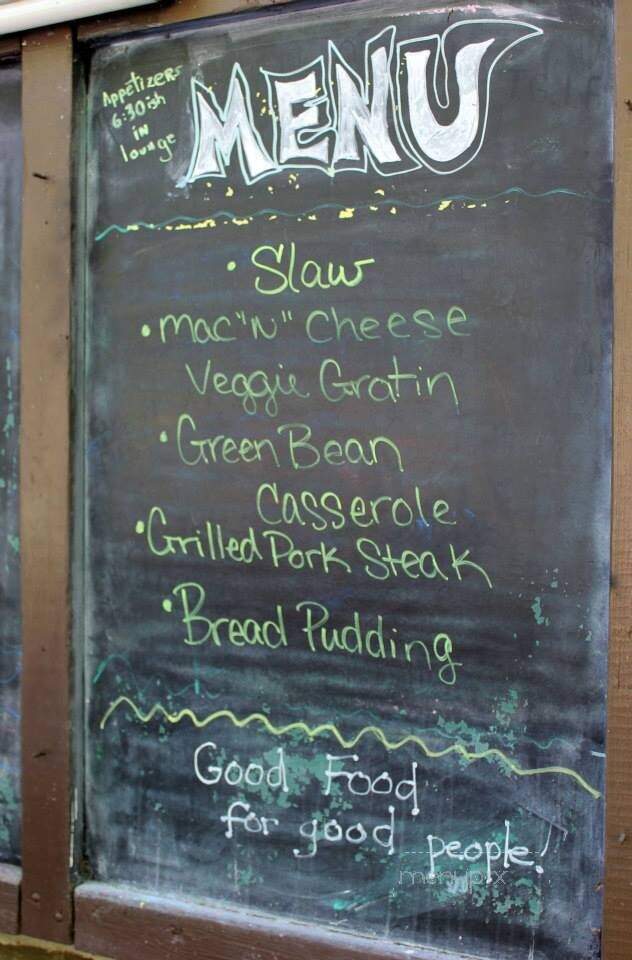 Appetizers
6:30ish
in
lounge
MENU
• Slaw
• Mac "N" Cheese
Veggie Gratin
• Green Bean
Casserole
• Grilled Pork Steak
• Bread Pudding
Good Food
for good people!
menupix